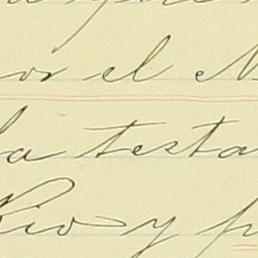 or el
la testa
Rio y p